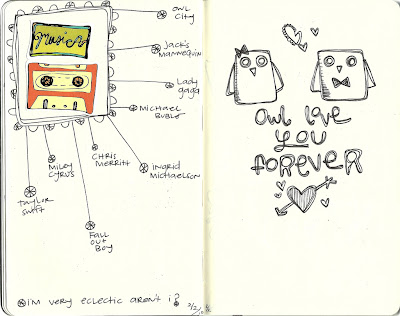 Music
OWL
CITY
JACK'S
MANNEQUIN
LADY
gaga
MICHAEL
BUBLE
INGRID
MICHAELSON
CHRIS
MERRITT
MILEY
CYRUS
TAYLOR
SWIFT
FALL
OUT
BOY
I'M VERY ECLECTIC AREN'T I?
OWL LOVE
YOU
FOREVER